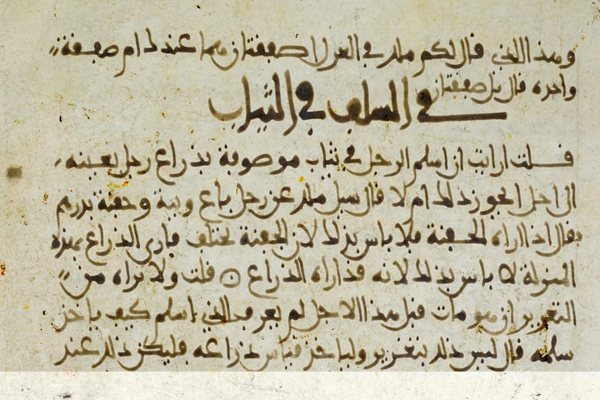 وهذا الذي قال لكم ملك في الغزل اصفقتان هما عندك ام صفقة
واحدة قال بل صفقتان
في السلف في الثياب
قلت ارايت ان اسلم الرجل في ثياب موصوفة بذراع رجل بعينه
الى اجل ايجوز ذلك ام لا قال سيل ملك عن رجل باع ويبة وحفنة بدرهم
فقال اذا اراه الحفنة فلا باس بذلك لان الحفنة تختلف فارى الذراع بهذه
المنزلة لا باس بذلك لانه قد اراه الذراع قلت ولا تراه من
التغرير ان هو مات قبل هذا الاجل لم يعرف الذي اسلم كيف ياخذ
سلمه قال ليس ذلك بتغرير ولياخذ قياس ذراعه فليكن ذلك عند